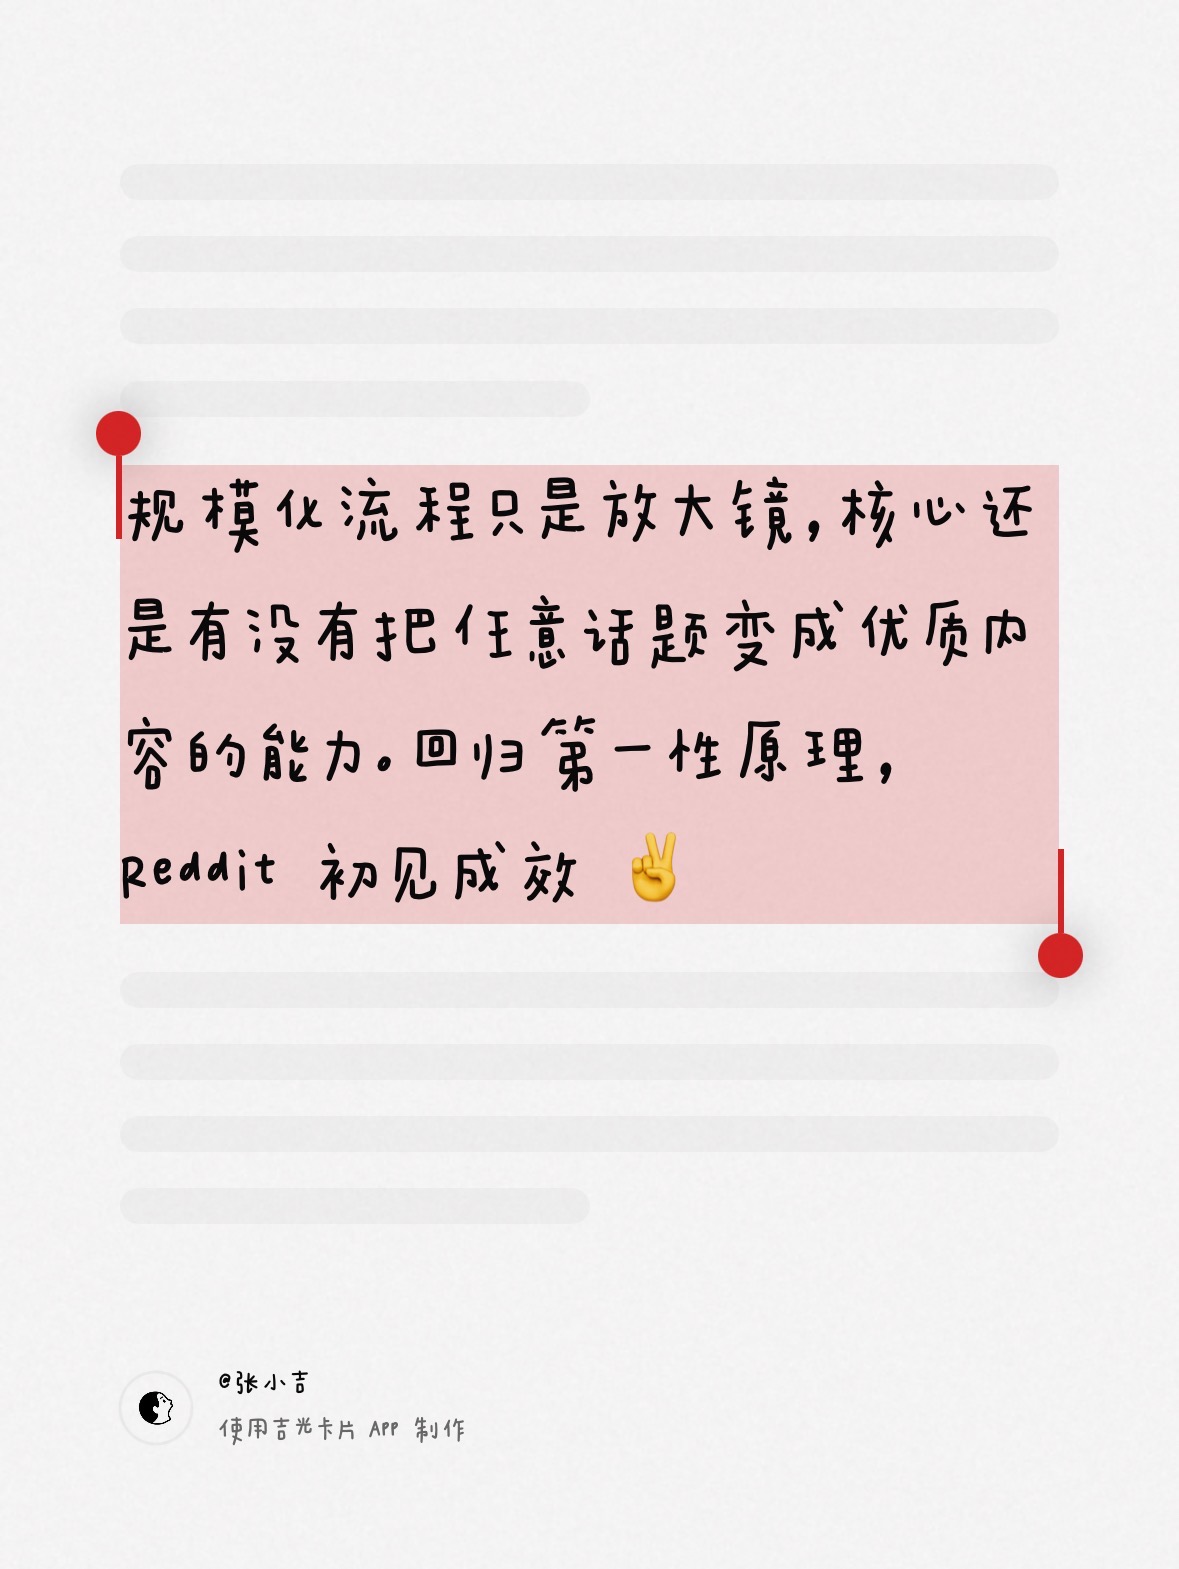 规模化流程只是放大镜，核心还
是有没有把任意话题变成优质内
容的能力。回归第一性原理，
Reddit 初见成效 ✌️
@张小吉
使用吉光卡片 APP 制作